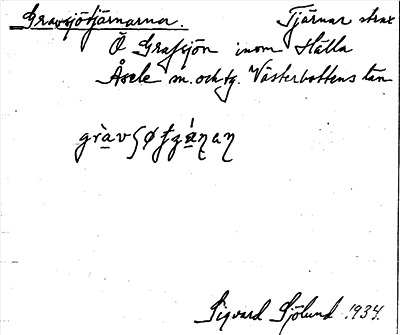 Gravsjötjärnarna. Tjärnar strax
Ö Grafsjön inom Hälla
Åsele s:n. och tg. Västerbottens län
Sigvard Sjölund 1934.